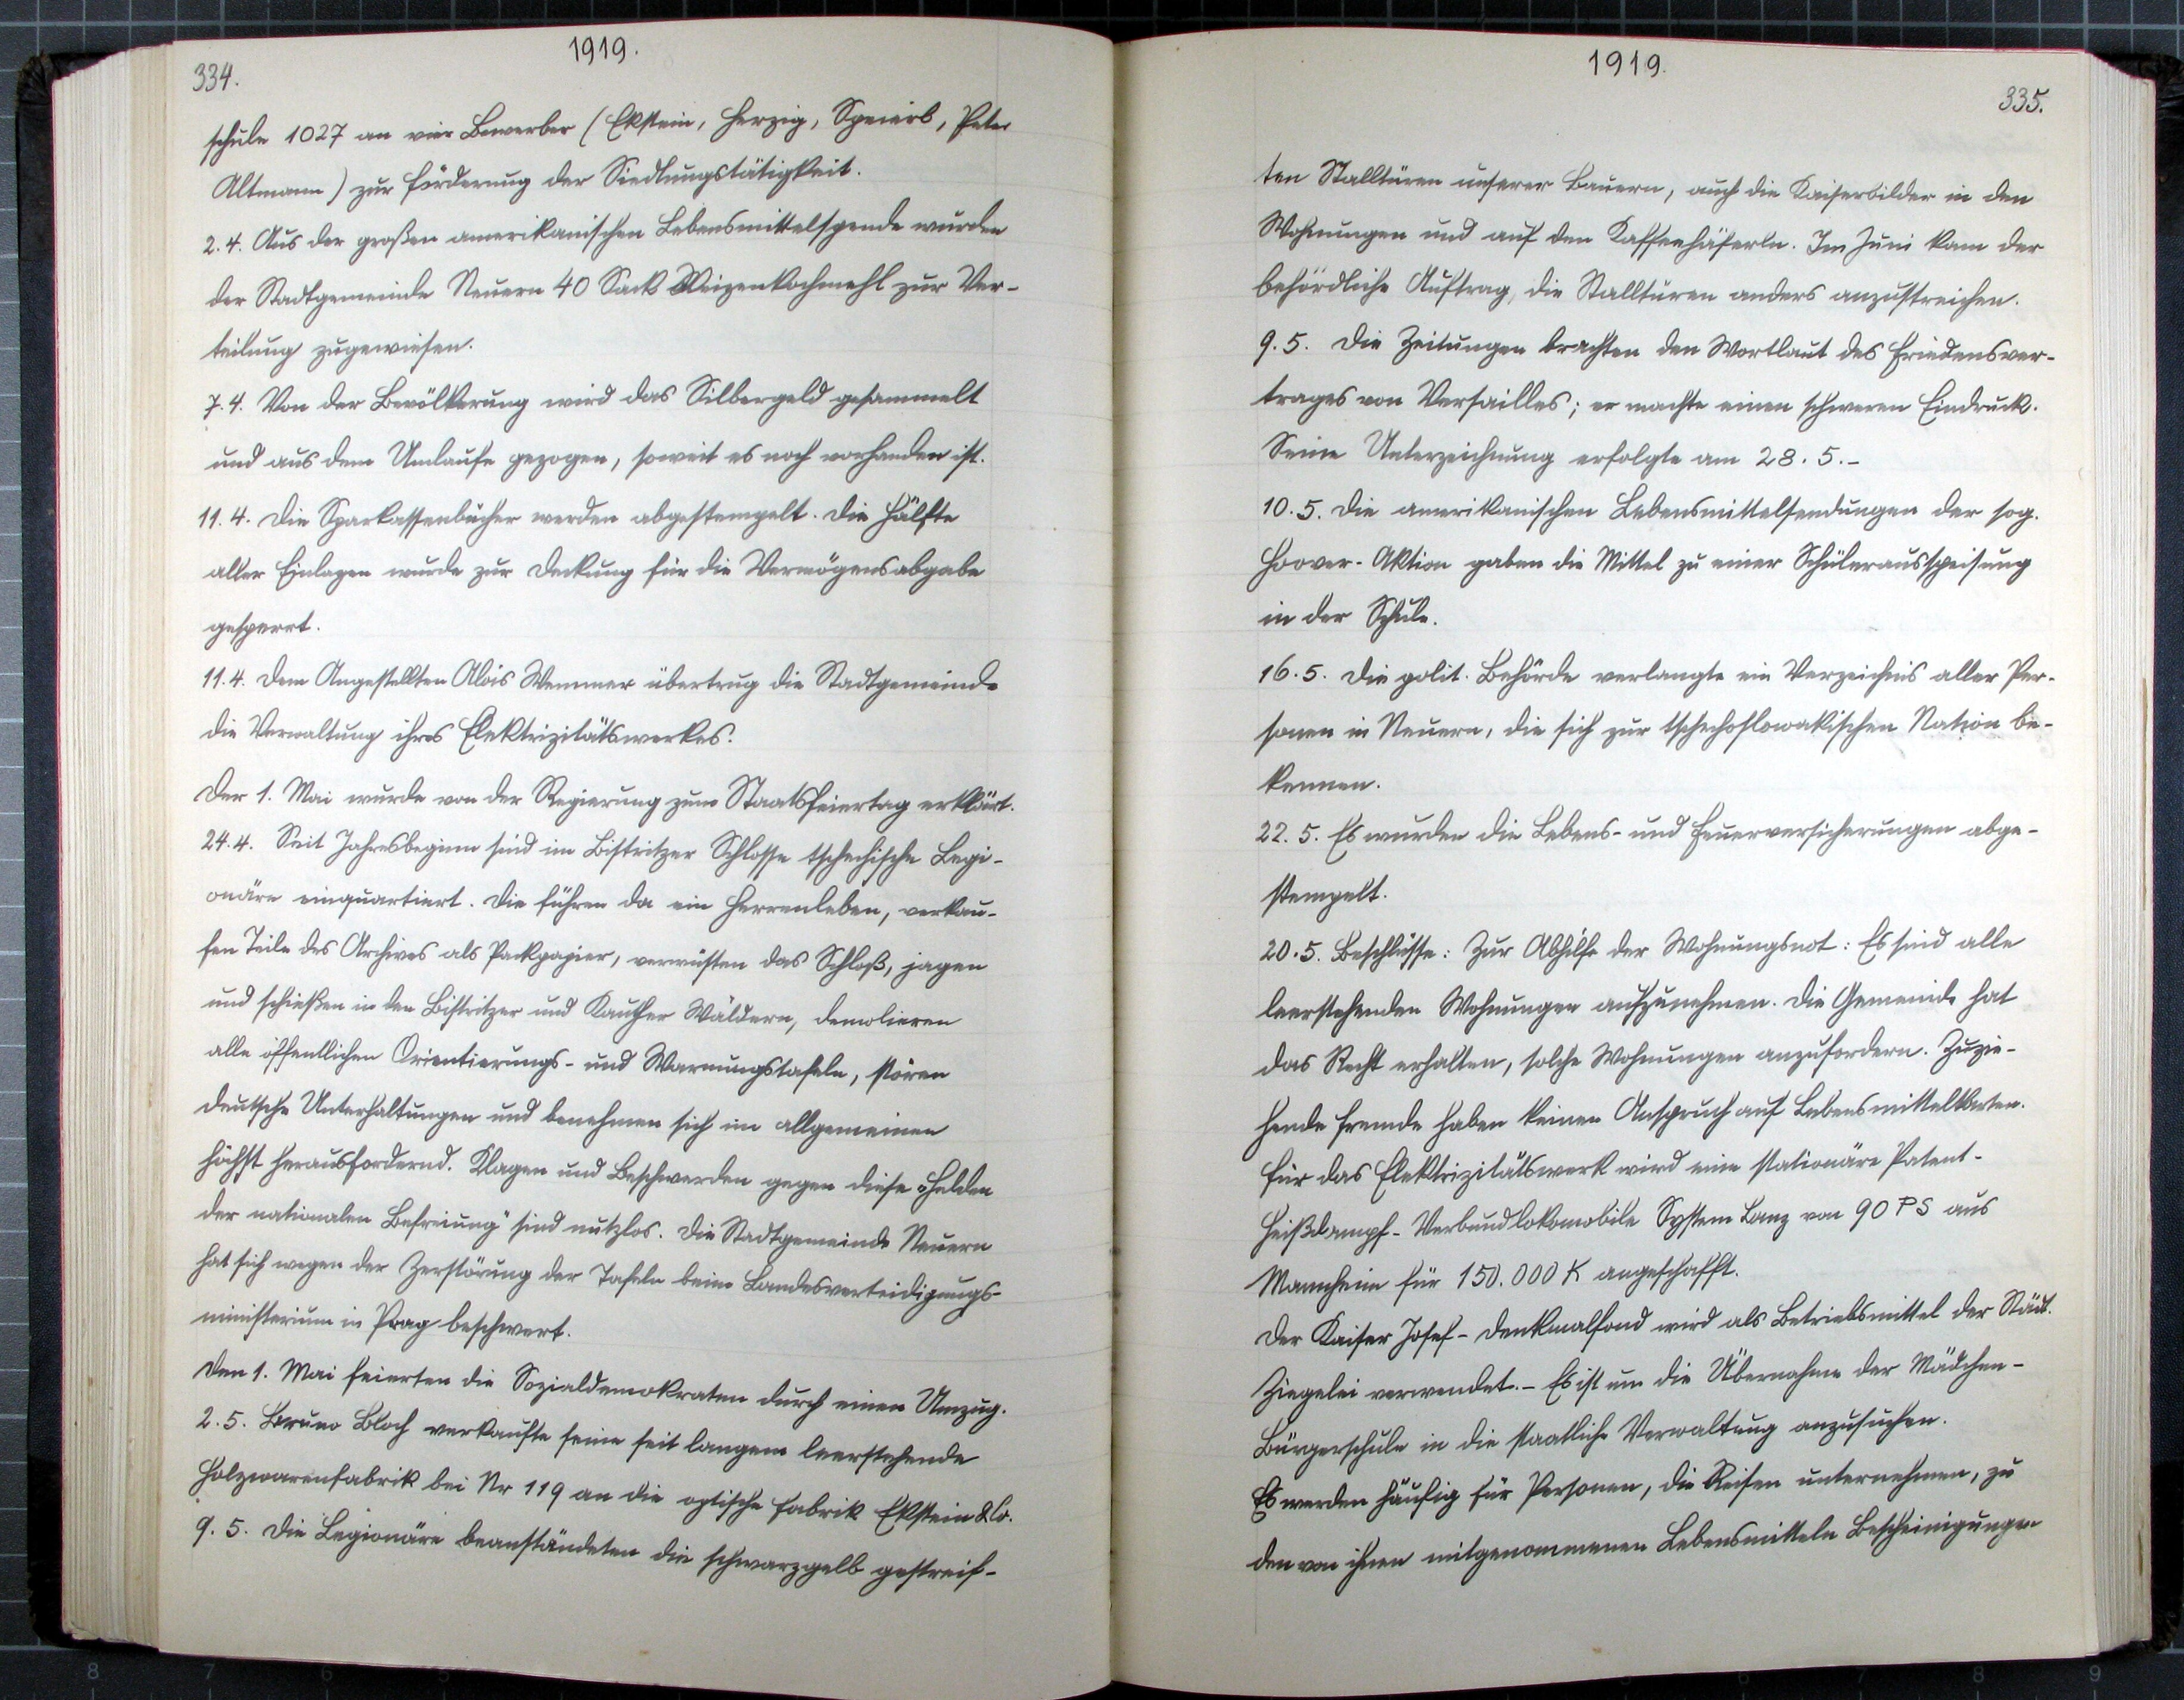 334.
1919.
schule 1027 an vier Bewerber (Ekstein, Herzig, Speierl, Peter
Altmann) zur Förderung der Siedlungstätigkeit.
2.4. Aus der großen amerikanischen Lebensmittelspende wurden
der Stadtgemeinde Neuern 40 Sack Weizenkochmehl zur Ver-
teilung zugewiesen.
7.4. Von der Bevölkerung wird das Silbergeld gesammelt
und aus dem Umlaufe gezogen, soweit es noch vorhanden ist.
11.4. Die Sparkassenbücher werden abgestempelt. Die Hälfte
aller Einlagen wurde zur Deckung für die Vermögensabgabe
gesperrt.
11.4. Dem Angestellten Alois Wemmer übertrug die Stadtgemeinde
die Verwaltung ihres Elektrizitätswerkes.
Der 1. Mai wurde von der Regierung zum Staatsfeiertag erklärt.
24.4. Seit Jahresbeginn sind im Bistritzer Schlosse tschechische Legi-
onäre einquartiert. Die führen da ein Herrenleben, verkau-
fen Teile des Archives als Packpapier, verwüsten das Schloß, jagen
und schießen in den Bistritzer und Kauther Wäldern, demolieren
alle öffentlichen Orientierungs- und Warnungstafeln, stören
deutsche Unterhaltungen und benehmen sich im allgemeinen
höchst herausfordernd. Klagen und Beschwerden gegen diese „Helden
der nationalen Befreiung" sind nutzlos. Die Stadtgemeinde Neuern
hat sich wegen der Zerstörung der Tafeln beim Landesverteidigungs-
ministerium in Prag beschwert.
Den 1. Mai feierten die Sozialdemokraten durch einen Umzug.
2.5. Bruno Bloch verkaufte seine seit langem leerstehende
Holzwarenfabrik bei Nr 119 an die optische Fabrik Ekstein & Co.
9.5. Die Legionäre beanständeten die schwarzgelb gestreif-
1919.
335.
ten Stalltüren unserer Bauern, auch die Kaiserbilder in den
Wohnungen und auf den Kaffeehäferln. Im Juni kam der
behördliche Auftrag, die Stalltüren anders anzustreichen.
9.5. Die Zeitungen brachten den Wortlaut des Friedensver-
trages von Versailles; er machte einen schweren Eindruck.
Seine Unterzeichnung erfolgte am 28.5.-
10.5. Die amerikanischen Lebensmittelsendungen der sog.
Hoover-Aktion gaben die Mittel zu einer Schülerausspeisung
in der Schule.
16.5. Die polit. Behörde verlangte ein Verzeichnis aller Per-
sonen in Neuern, die sich zur tschechoslowakischen Nation be-
kennen.
22.5. Es wurden die Lebens- und Feuerversicherungen abge-
stempelt.
20.5. Beschlüsse: Zur Abhilfe der Wohnungsnot: Es sind alle
leerstehenden Wohnungen aufzunehmen. Die Gemeinde hat
das Recht erhalten, solche Wohnungen anzufordern. Zuzie-
hende Fremde haben keinen Anspruch auf Lebensmittelkarten.
Für das Elektrizitätswerk wird eine stationäre Patent-
Heißdampf-Verbundlokomobile System Lanz von 90 PS aus
Mannheim für 150.000 K angeschafft.
Der Kaiser Josef-Denkmalfond wird als Betriebsmittel der Städt.
Ziegelei verwendet.- Es ist um die Übernahme der Mädchen-
Bürgerschule in die staatliche Verwaltung anzusuchen.
Es werden häufig für Personen, die Reisen unternehmen, zu
den von ihnen mitgenommenen Lebensmitteln Bescheinigungen